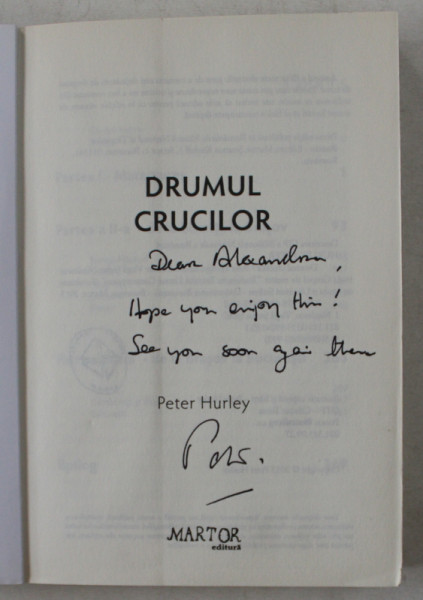 DRUMUL
CRUCILOR
Dear Alexandra,
Hope you enjoy this!
See you soon again then
Peter Hurley
Peter.
MARTOR
editură